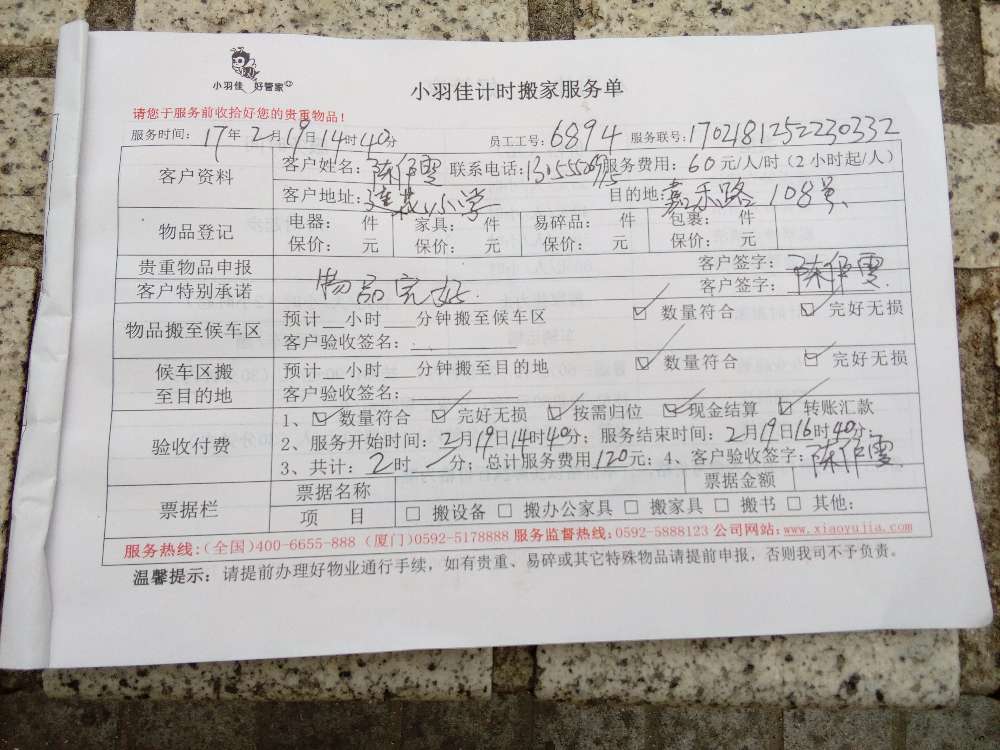 小羽佳 好管家
小羽佳计时搬家服务单
请您于服务前收拾好您的贵重物品！
服务时间：17年2月19日14时40分 员工工号：6894 服务联号：1702181252230332
客户资料
客户姓名：陈伊雯 联系电话： 服务费用：60元/人/时（2小时起/人）
客户地址：小学 目的地：嘉禾路108号
物品登记
电器： 件 家具： 件 易碎品： 件 包裹： 件
保价： 元 保价： 元 保价： 元 保价： 元
贵重物品申报 客户签字：
客户特别承诺 物品完好. 客户签字：陈伊雯
物品搬至候车区
预计__小时___分钟搬至候车区 ☑数量符合 ☑完好无损
客户验收签名：
候车区搬至目的地
预计__小时___分钟搬至目的地 ☑数量符合 ☑完好无损
客户验收签名：
验收付费
1、☑数量符合 ☑完好无损 ☑按需归位 ☑现金结算 ☑转账汇款
2、服务开始时间：2月19日14时40分；服务结束时间：2月19日16时40分；
3、共计：2时／分；总计服务费用120元；4、客户验收签字：陈伊雯
票据栏
票据名称 票据金额
项 目 □搬设备 □搬办公家具 □搬家具 □搬书 □其他：
服务热线：（全国）400-6655-888（厦门）0592-5178888 服务监督热线：0592-5888123 公司网站：www.xiaoyujia.com
温馨提示：请提前办理好物业通行手续，如有贵重、易碎或其它特殊物品请提前申报，否则我司不予负责。